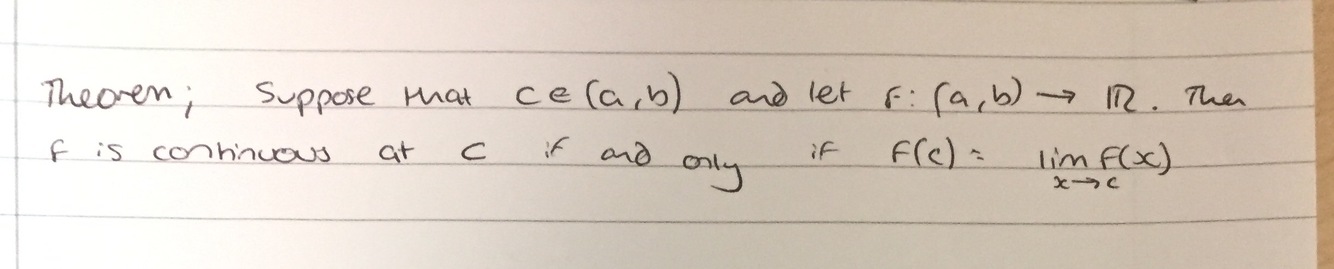 Theorem; Suppose that c ∈ (a,b) and let f: (a,b) → ℝ. Then
f is continuous at c if and only if f(c) = lim f(x)
x→c